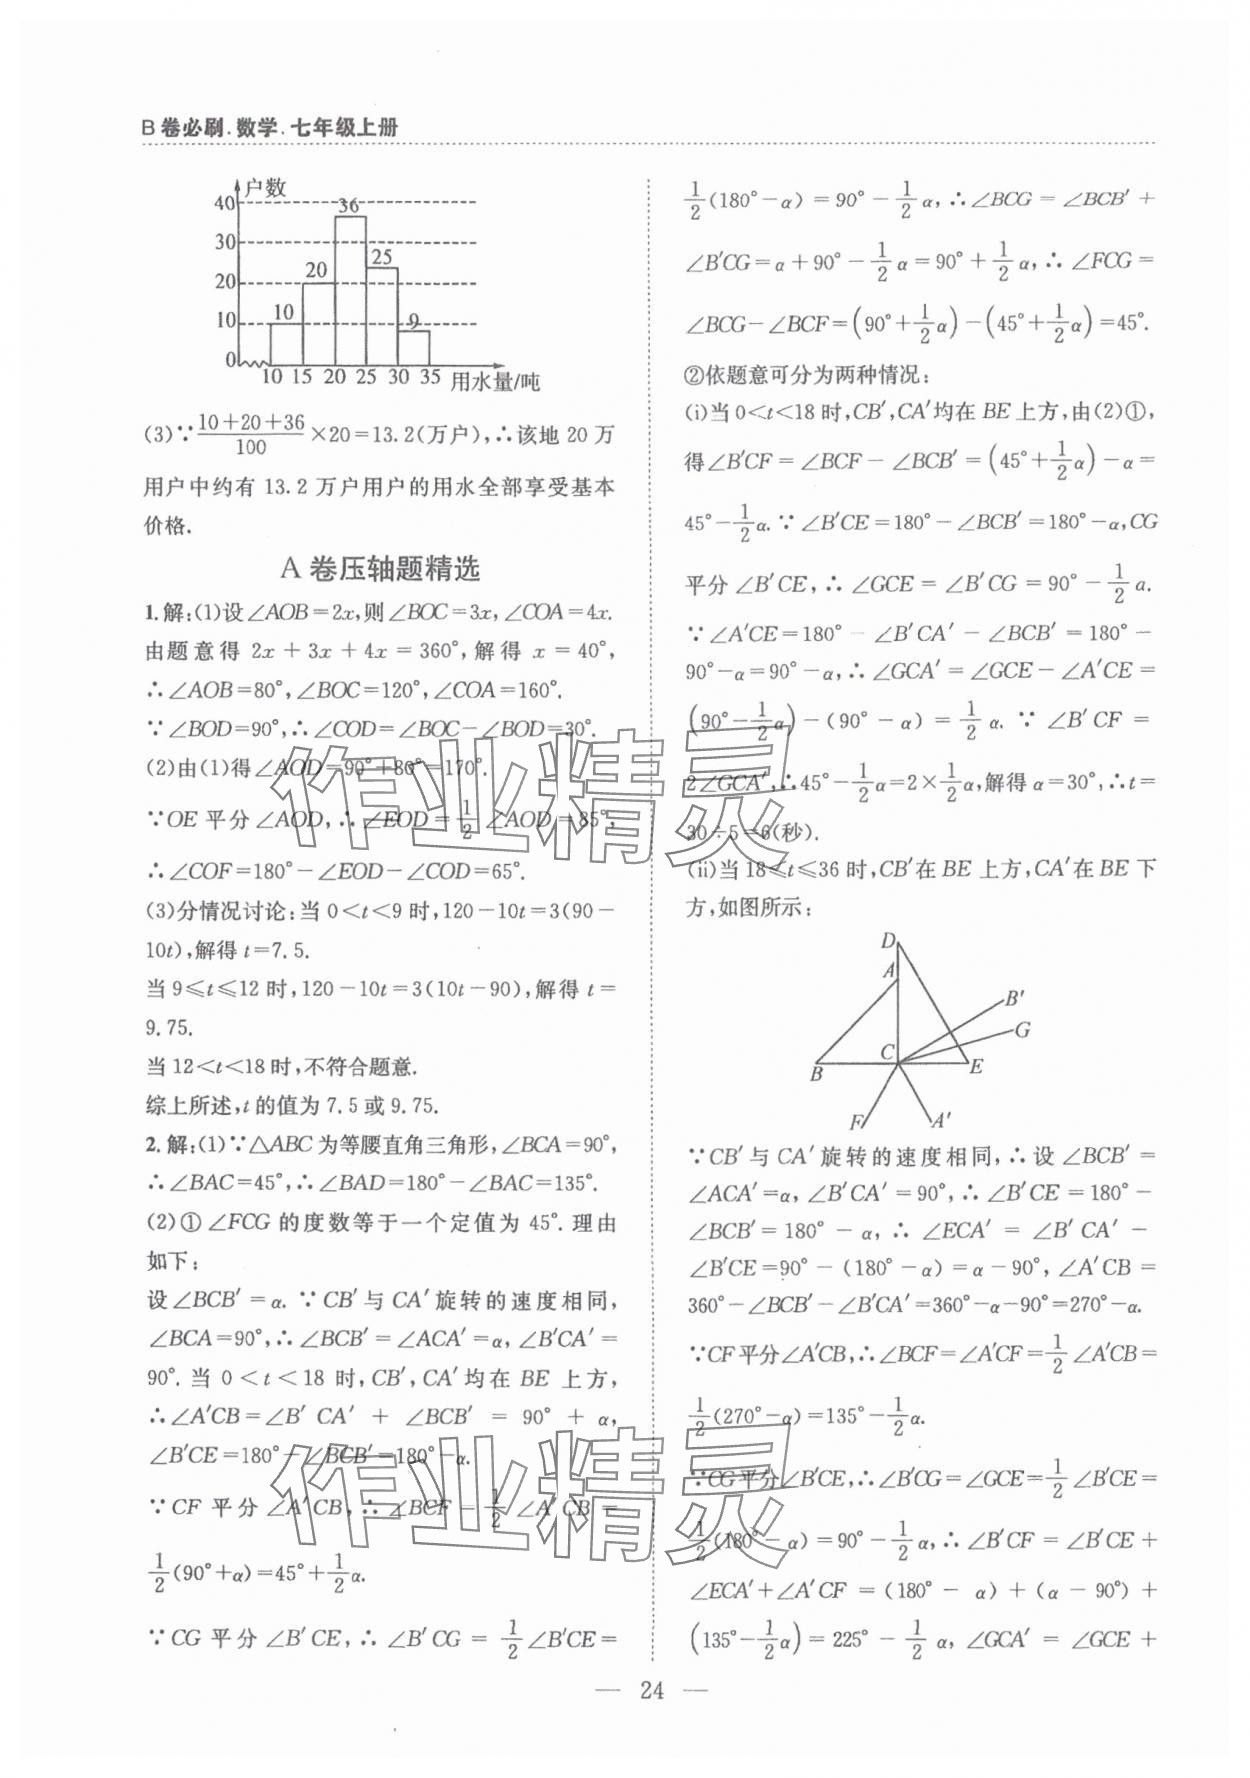 B 卷必刷.数学.七年级上册
户数
40
36
30
25
20
20
10
10
9
0
10 15 20 25 30 35 用水量/吨
(3)∵(10+20+36)/100×20=13.2(万户),∴该地 20 万
用户中约有 13.2 万户用户的用水全部享受基本
价格.
A 卷压轴题精选
1.解:(1)设∠AOB=2x,则∠BOC=3x,∠COA=4x.
由题意得 2x+3x+4x=360°,解得 x=40°,
∴∠AOB=80°,∠BOC=120°,∠COA=160°.
∵∠BOD=90°,∴∠COD=∠BOC-∠BOD=30°.
(2)由(1)得∠AOD=90°+80°=170°.
∵OE 平分∠AOD,∴∠EOD=1/2∠AOD=85°,
∴∠COF=180°-∠EOD-∠COD=65°.
(3)分情况讨论:当 0<t<9 时,120-10t=3(90-
10t),解得 t=7.5.
当 9⩽t⩽12 时,120-10t=3(10t-90),解得 t=
9.75.
当 12<t<18 时,不符合题意.
综上所述,t 的值为 7.5 或 9.75.
2.解:(1)∵△ABC 为等腰直角三角形,∠BCA=90°,
∴∠BAC=45°,∴∠BAD=180°-∠BAC=135°.
(2)①∠FCG 的度数等于一个定值为 45°.理由
如下:
设∠BCB′=α.∵CB′与 CA′旋转的速度相同,
∠BCA=90°,∴∠BCB′=∠ACA′=α,∠B′CA′=
90°.当 0<t<18 时,CB′,CA′均在 BE 上方,
∴∠A′CB=∠B′CA′+∠BCB′=90°+α,
∠B′CE=180°-∠BCB′=180°-α.
∵CF 平分∠A′CB,∴∠BCF=1/2∠A′CB=
1/2(90°+α)=45°+1/2α.
∵CG 平分∠B′CE,∴∠B′CG=1/2∠B′CE=
1/2(180°-α)=90°-1/2α,∴∠BCG=∠BCB′+
∠B′CG=α+90°-1/2α=90°+1/2α,∴∠FCG=
∠BCG-∠BCF=(90°+1/2α)-(45°+1/2α)=45°.
②依题意可分为两种情况:
(i)当 0<t<18 时,CB′,CA′均在 BE 上方,由(2)①,
得∠B′CF=∠BCF-∠BCB′=(45°+1/2α)-α=
45°-1/2α.∵∠B′CE=180°-∠BCB′=180°-α,CG
平分∠B′CE,∴∠GCE=∠B′CG=90°-1/2a.
∵∠A′CE=180°-∠B′CA′-∠BCB′=180°-
90°-α=90°-α,∴∠GCA′=∠GCE-∠A′CE=
(90°-1/2α)-(90°-α)=1/2α.∵∠B′CF=
2∠GCA′,∴45°-1/2α=2×1/2α,解得 α=30°,∴t=
30÷5=6(秒).
(ii)当 18⩽t⩽36 时,CB′在 BE 上方,CA′在 BE 下
方,如图所示:
D
A
B′
G
C
B
E
F
A′
∵CB′与 CA′旋转的速度相同,∴设∠BCB′=
∠ACA′=α,∠B′CA′=90°,∴∠B′CE=180°-
∠BCB′=180°-α,∴∠ECA′=∠B′CA′-
∠B′CE=90°-(180°-α)=α-90°,∠A′CB=
360°-∠BCB′-∠B′CA′=360°-α-90°=270°-α.
∵CF 平分∠A′CB,∴∠BCF=∠A′CF=1/2∠A′CB=
1/2(270°-α)=135°-1/2α.
∵CG 平分∠B′CE,∴∠B′CG=∠GCE=1/2∠B′CE=
1/2(180°-α)=90°-1/2α,∴∠B′CF=∠B′CE+
∠ECA′+∠A′CF=(180°-α)+(α-90°)+
(135°-1/2α)=225°-1/2α,∠GCA′=∠GCE+
— 24 —
作业精灵
作业精灵